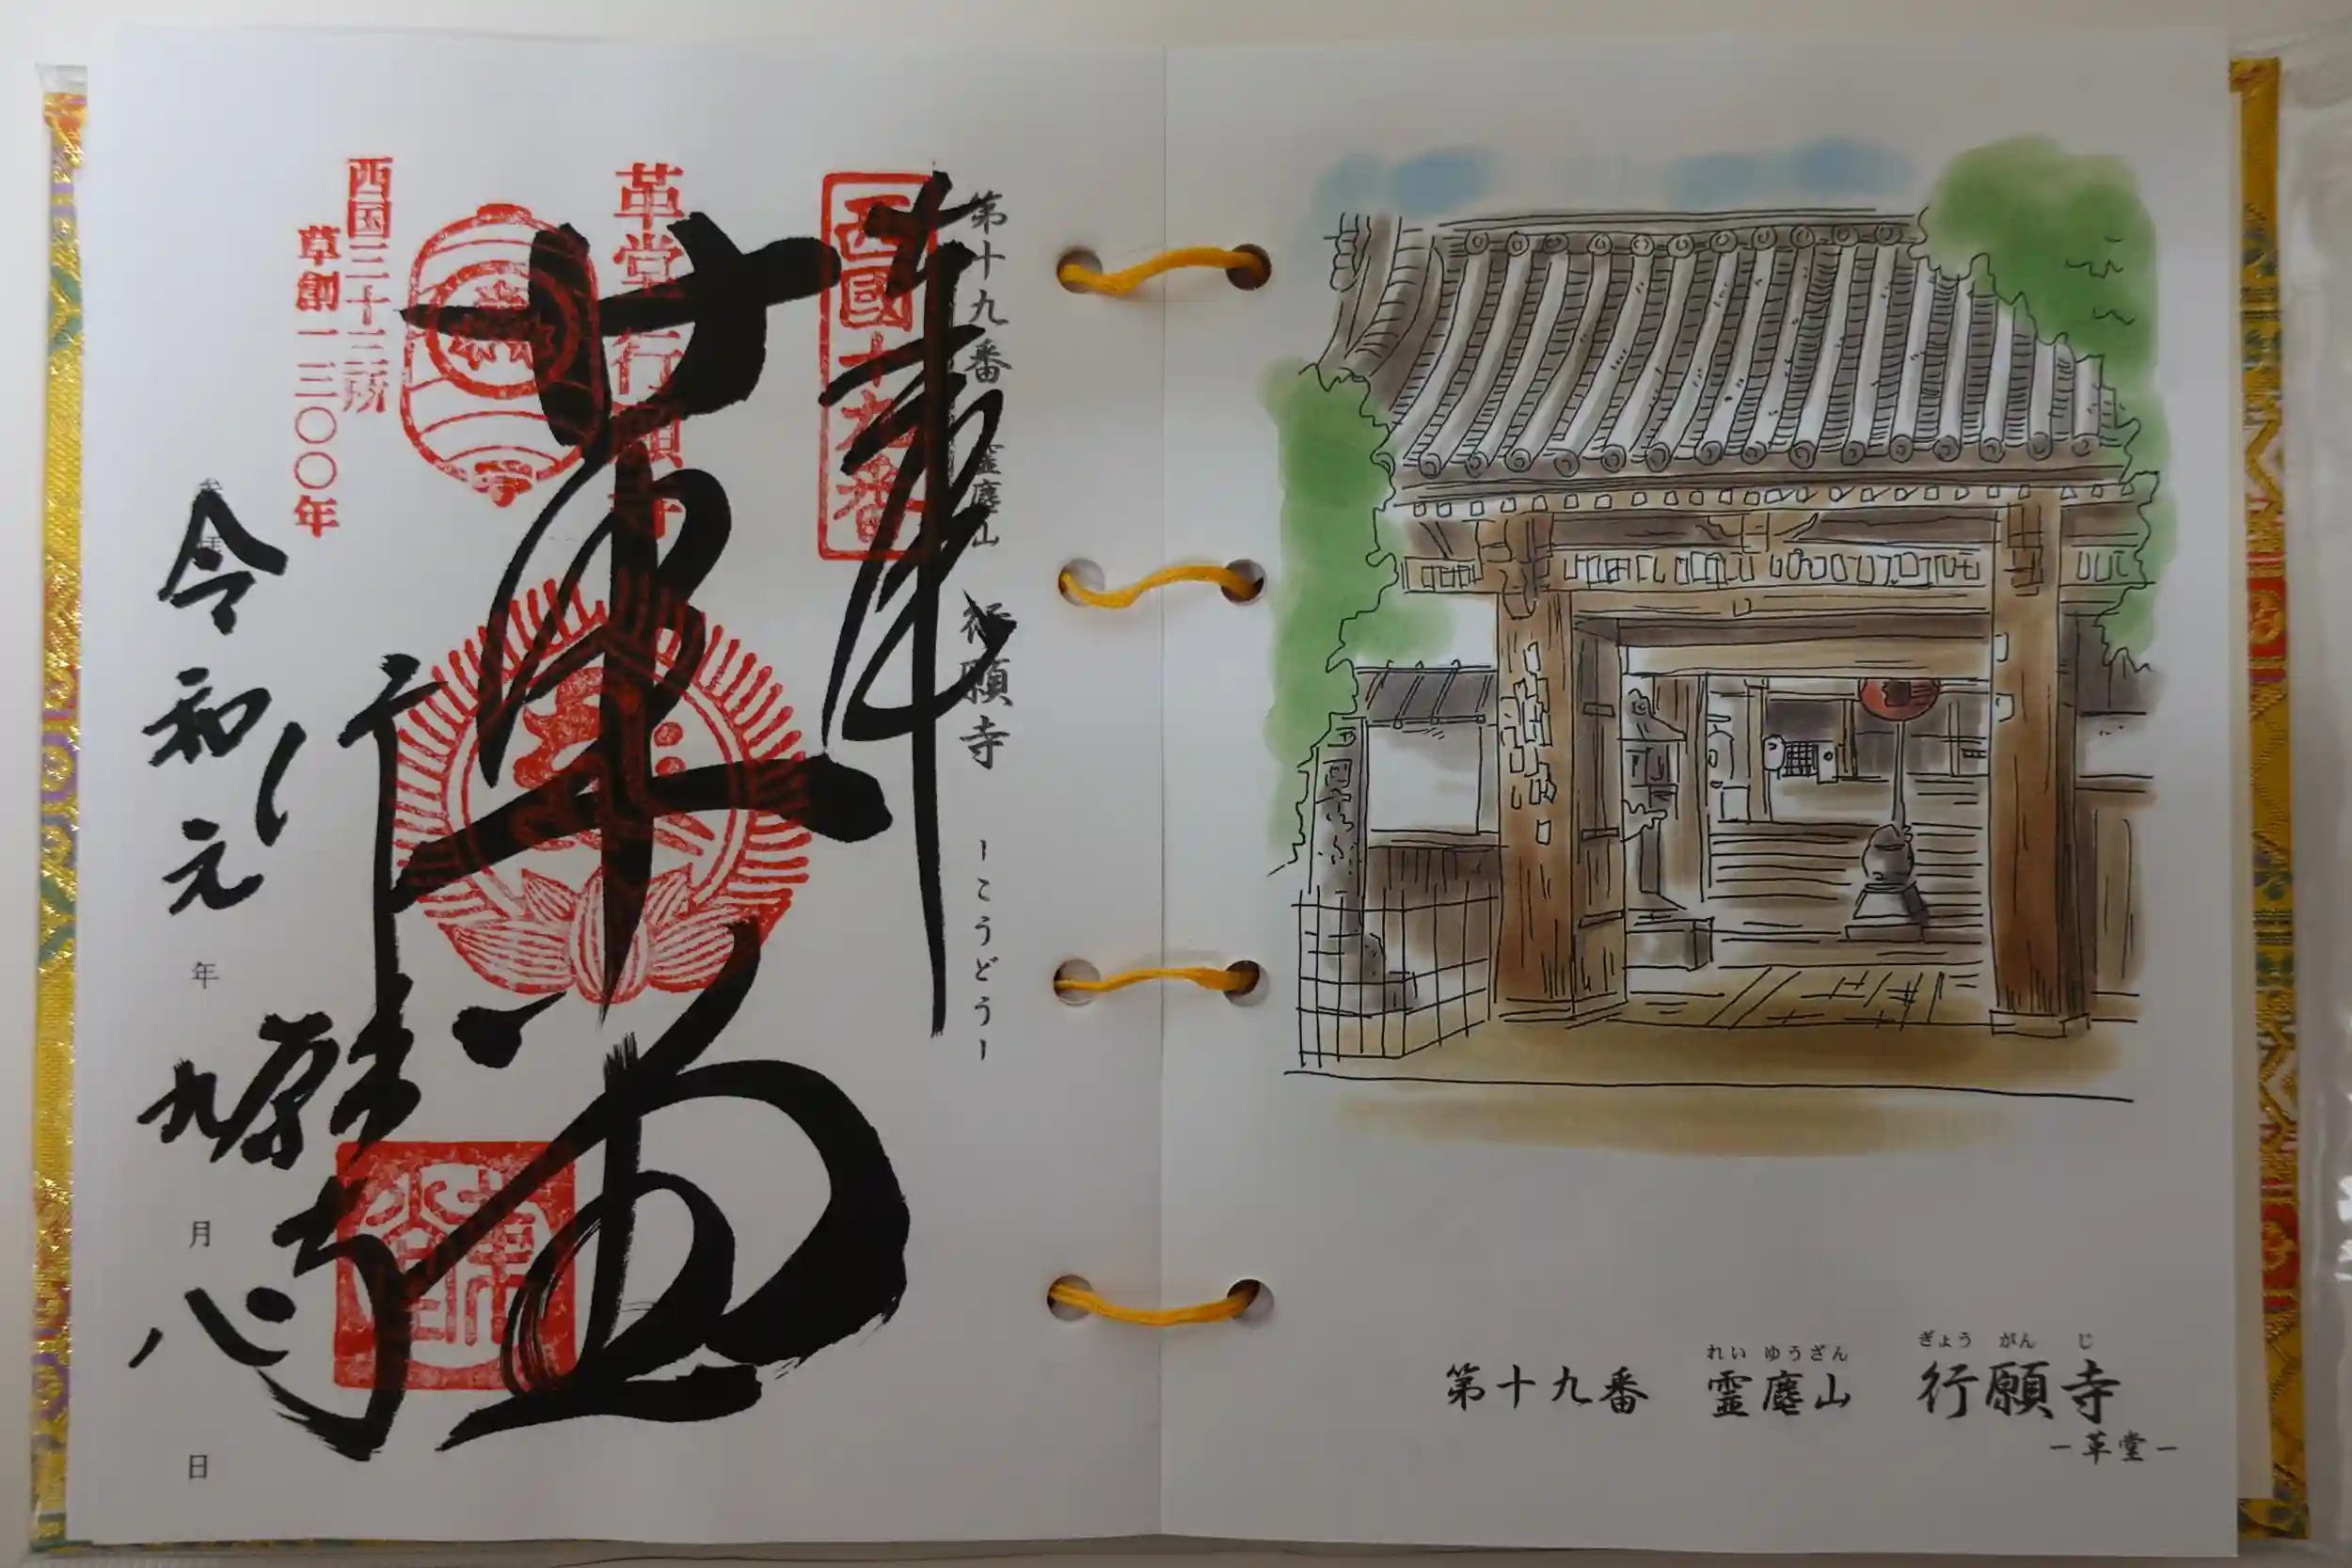 第十九番 霊麀山 行願寺 -こうどう-
奉拝
西國十九番
革堂行願寺
革堂
西国三十三所
草創一三〇〇年
行願寺
令和元年九月八日
れいゆうざん ぎょうがんじ
第十九番 霊麀山 行願寺
-革堂-